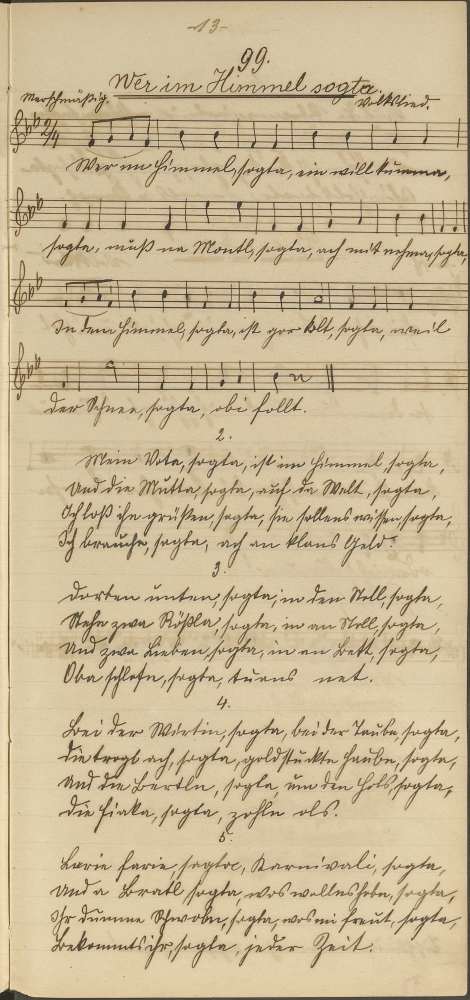 -13-
99.
Wer im Himmel sogta.
Marschmäßig. Volkslied.
2/4
Wer im Himmel, sogta, ein will kumma,
sogta, muß na Montl, sogta, ach mit nehma, sogta,
In dem Himmel, sogta, ist gor kolt, sogta, weil
der Schnee, sogta, obi follt.
2.
Mein Vota, sogta, ist im Himmel, sogta,
Und die Mutta, sogta, auf da Welt, sogta,
Ich loß ihn grüßen, sogta, sie sollens wissen, sogta,
Ich brauche, sogta, ach an klans Geld.
3.
Dorten unten, sogta, in den Stoll, sogta,
Stehn zwa Rößla, sogta, in an Stoll, sogta,
Und zwa Lieben, sogta, in an Bett, sogta,
Oba schlofn, sogta, tuans net.
4.
Bei der Wirtin, sogta, bei der Taube, sogta,
die trogt ach, sogta, goldstückte Haube, sogta,
Und die Perln, sogta, um den Hols, sogta,
die Fiaka, sogta, zohln ols.
5.
Larie farie, sogta, Karnivali, sogta,
Und a Bratl, sogta, wos wollns hobn, sogta,
Ihr dumme Schwobn, sogta, wos mi freut, sogta,
Bekommts ihr, sogta, jeder Zeit.